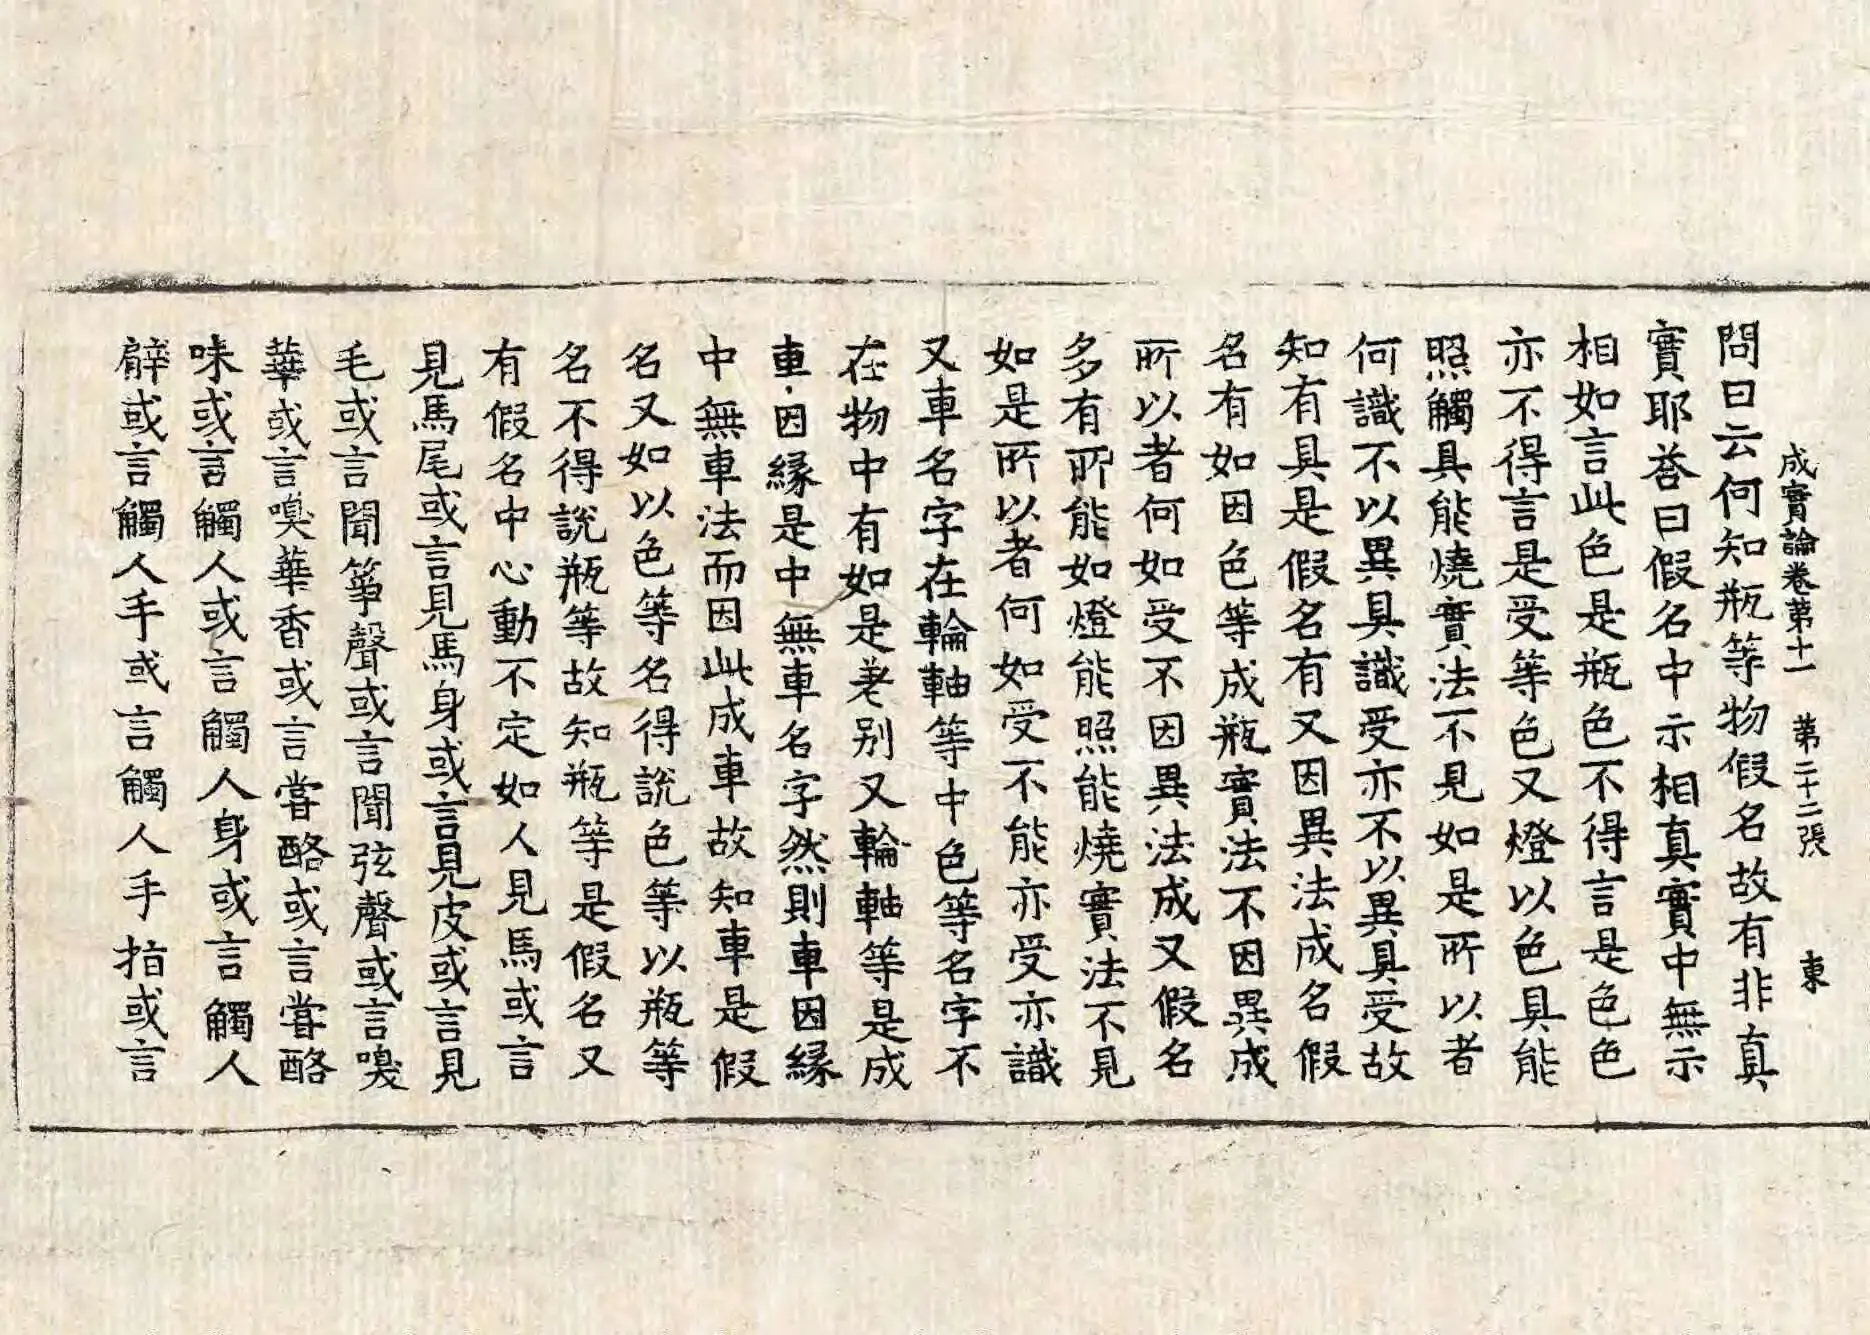 成實論卷第十一　第二十二張　東
問曰云何知瓶等物假名故有非真
實耶荅曰假名中示相真實中無示
相如言此色是瓶色不得言是色色
亦不得言是受等色又燈以色具能
照觸具能燒實法不見如是所以者
何識不以異具識受亦不以異具受故
知有具是假名有又因異法成名假
名有如因色等成瓶實法不因異成
所以者何如受不因異法成又假名
多有所能如燈能照能燒實法不見
如是所以者何如受不能亦受亦識
又車名字在輪軸等中色等名字不
在物中有如是差别又輪軸等是成
車因緣是中無車名字然則車因緣
中無車法而因此成車故知車是假
名又如以色等名得說色等以瓶等
名不得說瓶等故知瓶等是假名又
有假名中心動不定如人見馬或言
見馬尾或言見馬身或言見皮或言見
毛或言聞箏聲或言聞弦聲或言嗅
華或言嗅華香或言甞酪或言甞酪
味或言觸人或言觸人身或言觸人
臂或言觸人手或言觸人手指或言